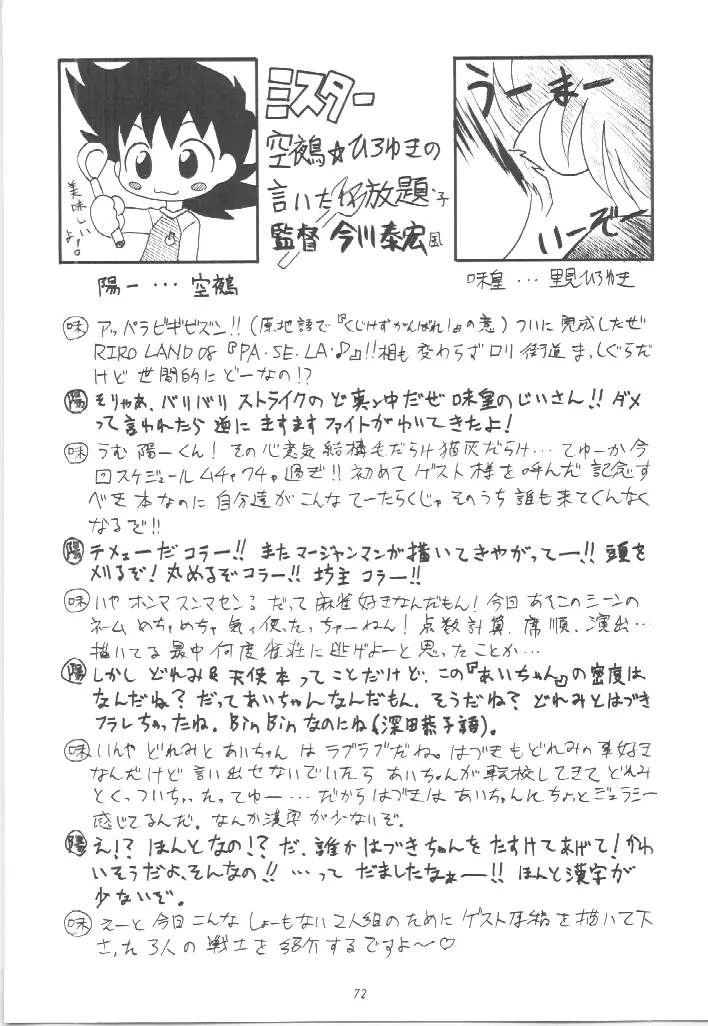 美味しいよ!
ミスター
空鵺☆ひろゆきの
言いたい放題
監督 今川泰宏風
うーまー
いーぞー
陽一・・・空鵺
味皇・・・里見ひろゆき
味 アッパラピギビズン!!(原地語で『くじけずがんばれ!』の意)ついに完成したぜ
RIRO LAND 08『PA・SE・LA・♪』!!相も変わらずロリ街道まっしぐらだ
けど世間的にどーなの!?
陽 そりゃあ、バリバリストライクのど真ン中だぜ味皇のじいさん!!ダメ
って言われたら逆にますますファイトがわいてきたよ!
味 うむ陽一くん!その心意気結構毛だらけ猫灰だらけ…てゆーか今
回スケジュールムチャクチャ過ぎ!!初めてゲスト様を呼んだ記念す
べき本なのに自分達がこんなてーたらくじゃそのうち誰も来てくんなく
なるぞ!!
陽 テメェーだコラー!!またマージャンマンが描いてきやがってー!!頭を
刈るぞ!丸めるぞコラー!!坊主コラー!!
味 いやホンマスンマセンだって麻雀好きなんだもん!今回あそこのシーンの
ネームめちゃめちゃ気ィ使ったっちゃーねん!点数計算、席順、演出…
描いてる最中何度雀荘に逃げよーと思ったことか…
陽 しかしどれみ&天使本ってことだけど、この『あいちゃん』の密度は
なんだね?だってあいちゃんなんだもん。そうだね?どれみとはづき
フラレちゃったね。Bin Binなのにね(深田恭子語)。
味 いんやどれみとあいちゃんはラブラブだね。はづきもどれみの事好き
なんだけど言い出せないでいたらあいちゃんが転校してきてどれみ
とくっついちゃったってゆー…だからはづきはあいちゃんにちょっとジェラシー
感じてるんだ。なんか漢字が少ないぞ。
陽 え!?ほんとなの!?だ、誰かはづきちゃんをたすけてあげて!かわ
いそうだよ、そんなの!!…ってだましたなぁー!!ほんと漢字が
少ないぞ。
味 えーと今回こんなしょーもない2人組のためにゲスト原稿を描いて下
さった3人の戦士を紹介するですよ〜♡
72